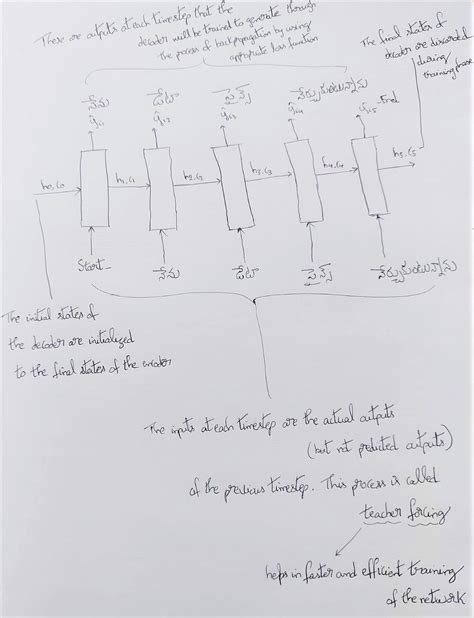 These are outputs at each timestep that the
decoder will be trained to generate through
the process of backpropagation by using
appropriate loss function
The final states of
decoder are discarded
during
training phase
నేను డేటా సైన్స్ నేర్చుకుంటున్నాను
ŷi1 ŷi2 ŷi3 ŷi4 ŷi5 _End
h0,c0 h1,c1 h2,c2 h3,c3 h4,c4 h5,c5
Start_ నేను డేటా సైన్స్ నేర్చుకుంటున్నాను
The initial states of
the decoder are initialized
to the final states of the encoder
The inputs at each timestep are the actual outputs
(but not predicted outputs)
of the previous timestep. This process is called
teacher forcing
helps in faster and efficient training
of the network